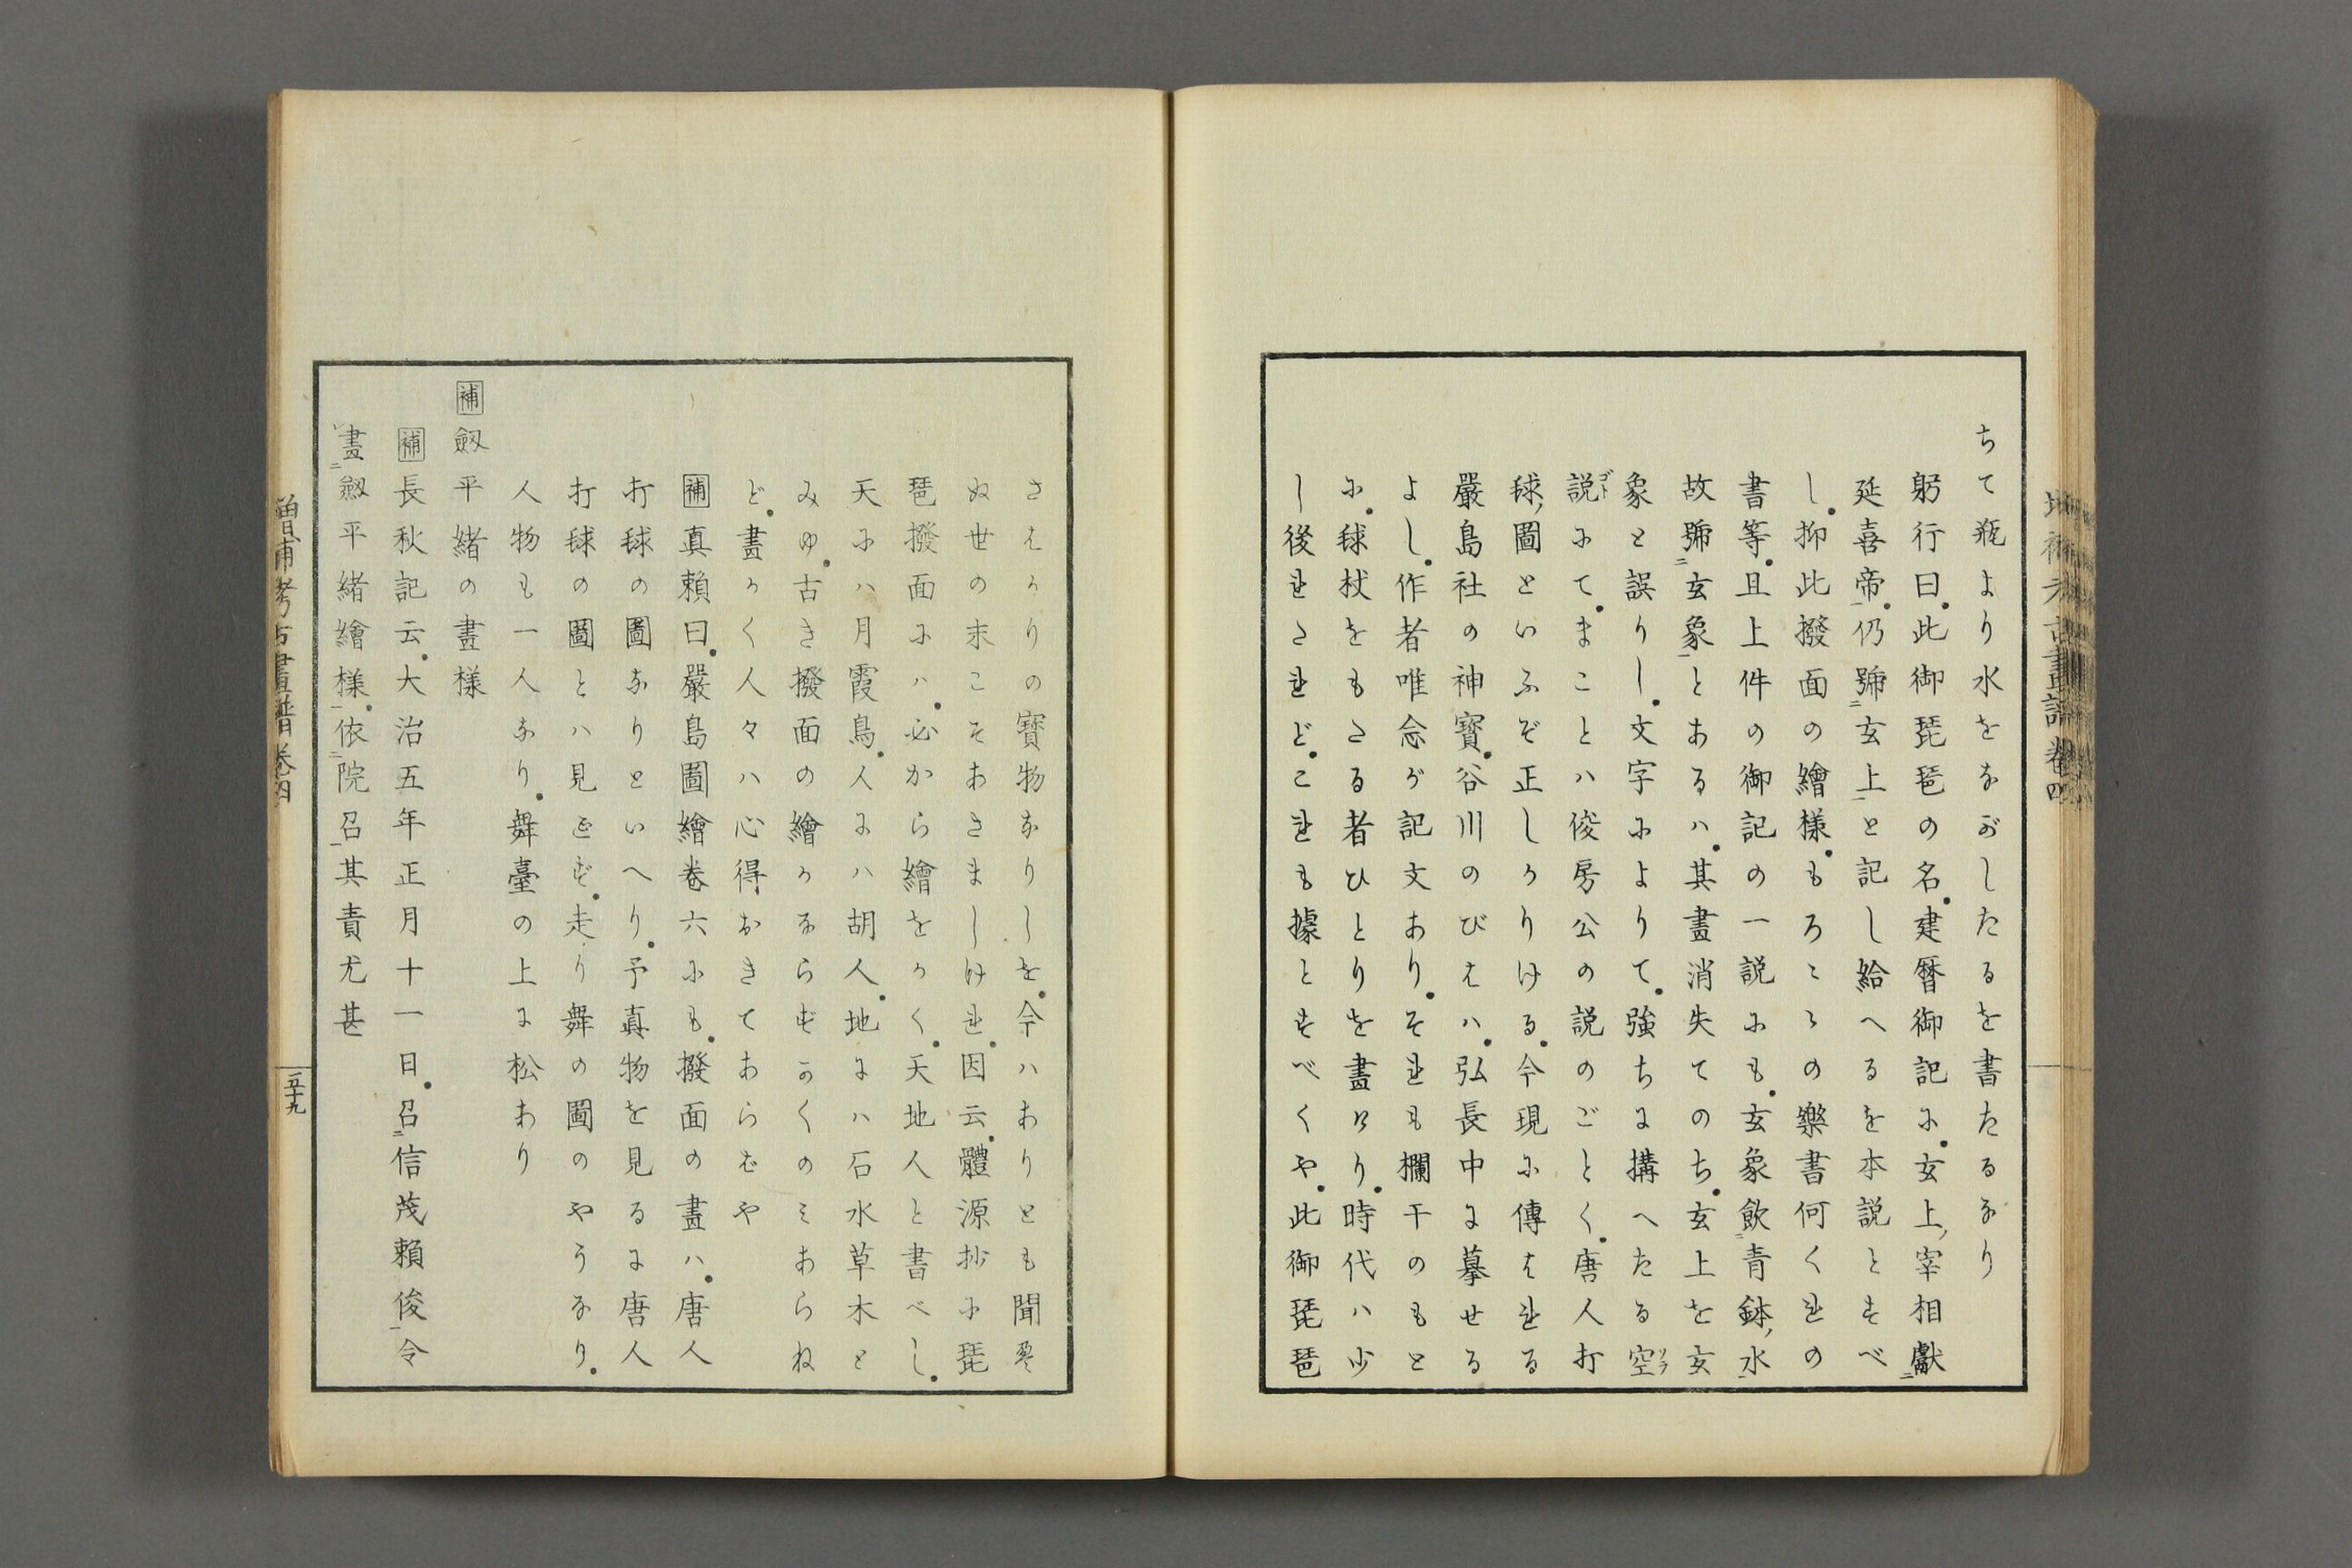 ちて瓶より水をながしたるを書たるなり
躬行曰此御琵琶の名建暦御記に玄上宰相獻
延喜帝仍號玄上と記し給へるを本説とすべ
し抑此撥面の繪様もろこしの樂書何くれの
書等且上件の御記の一説にも玄象飲青鉢水
故號玄象とあるハ其畫消失てのち玄上を玄
象と誤りし文字によりて強ちに搆へたる空
説にてまことハ俊房公の説のごとく唐人打
毬圖といふぞ正しかりける今現に傳はれる
嚴島社の神寶谷川のびはハ弘長中に摹せる
よし作者唯念が記文ありそれも欄干のもと
に毬杖をもたる者ひとりを畫けり時代ハ少
し後れたれどこれも據とすべくや此御琵琶
さはかりの寶物なりしを今ハありとも聞え
ぬ世の末こそあさましけれ因云體源抄に琵
琶撥面にハ必から繪をかく天地人と書べし
天にハ月霞鳥人にハ胡人地にハ石水草木と
みゆ古き撥面の繪かならずかくのミあらね
ど畫かく人々ハ心得おきてあらむや
補真頼曰嚴島圖繪卷六にも撥面の畫ハ唐人
打毬の圖なりといへり予真物を見るに唐人
打毬の圖とハ見えず走り舞の圖のやうなり
人物も一人なり舞臺の上に松あり
補劔平緒の畫様
補長秋記云大治五年正月十一日召信茂頼俊令
畫劔平緒繪様依院召其責尤甚
増補考古畫譜卷四
五十九